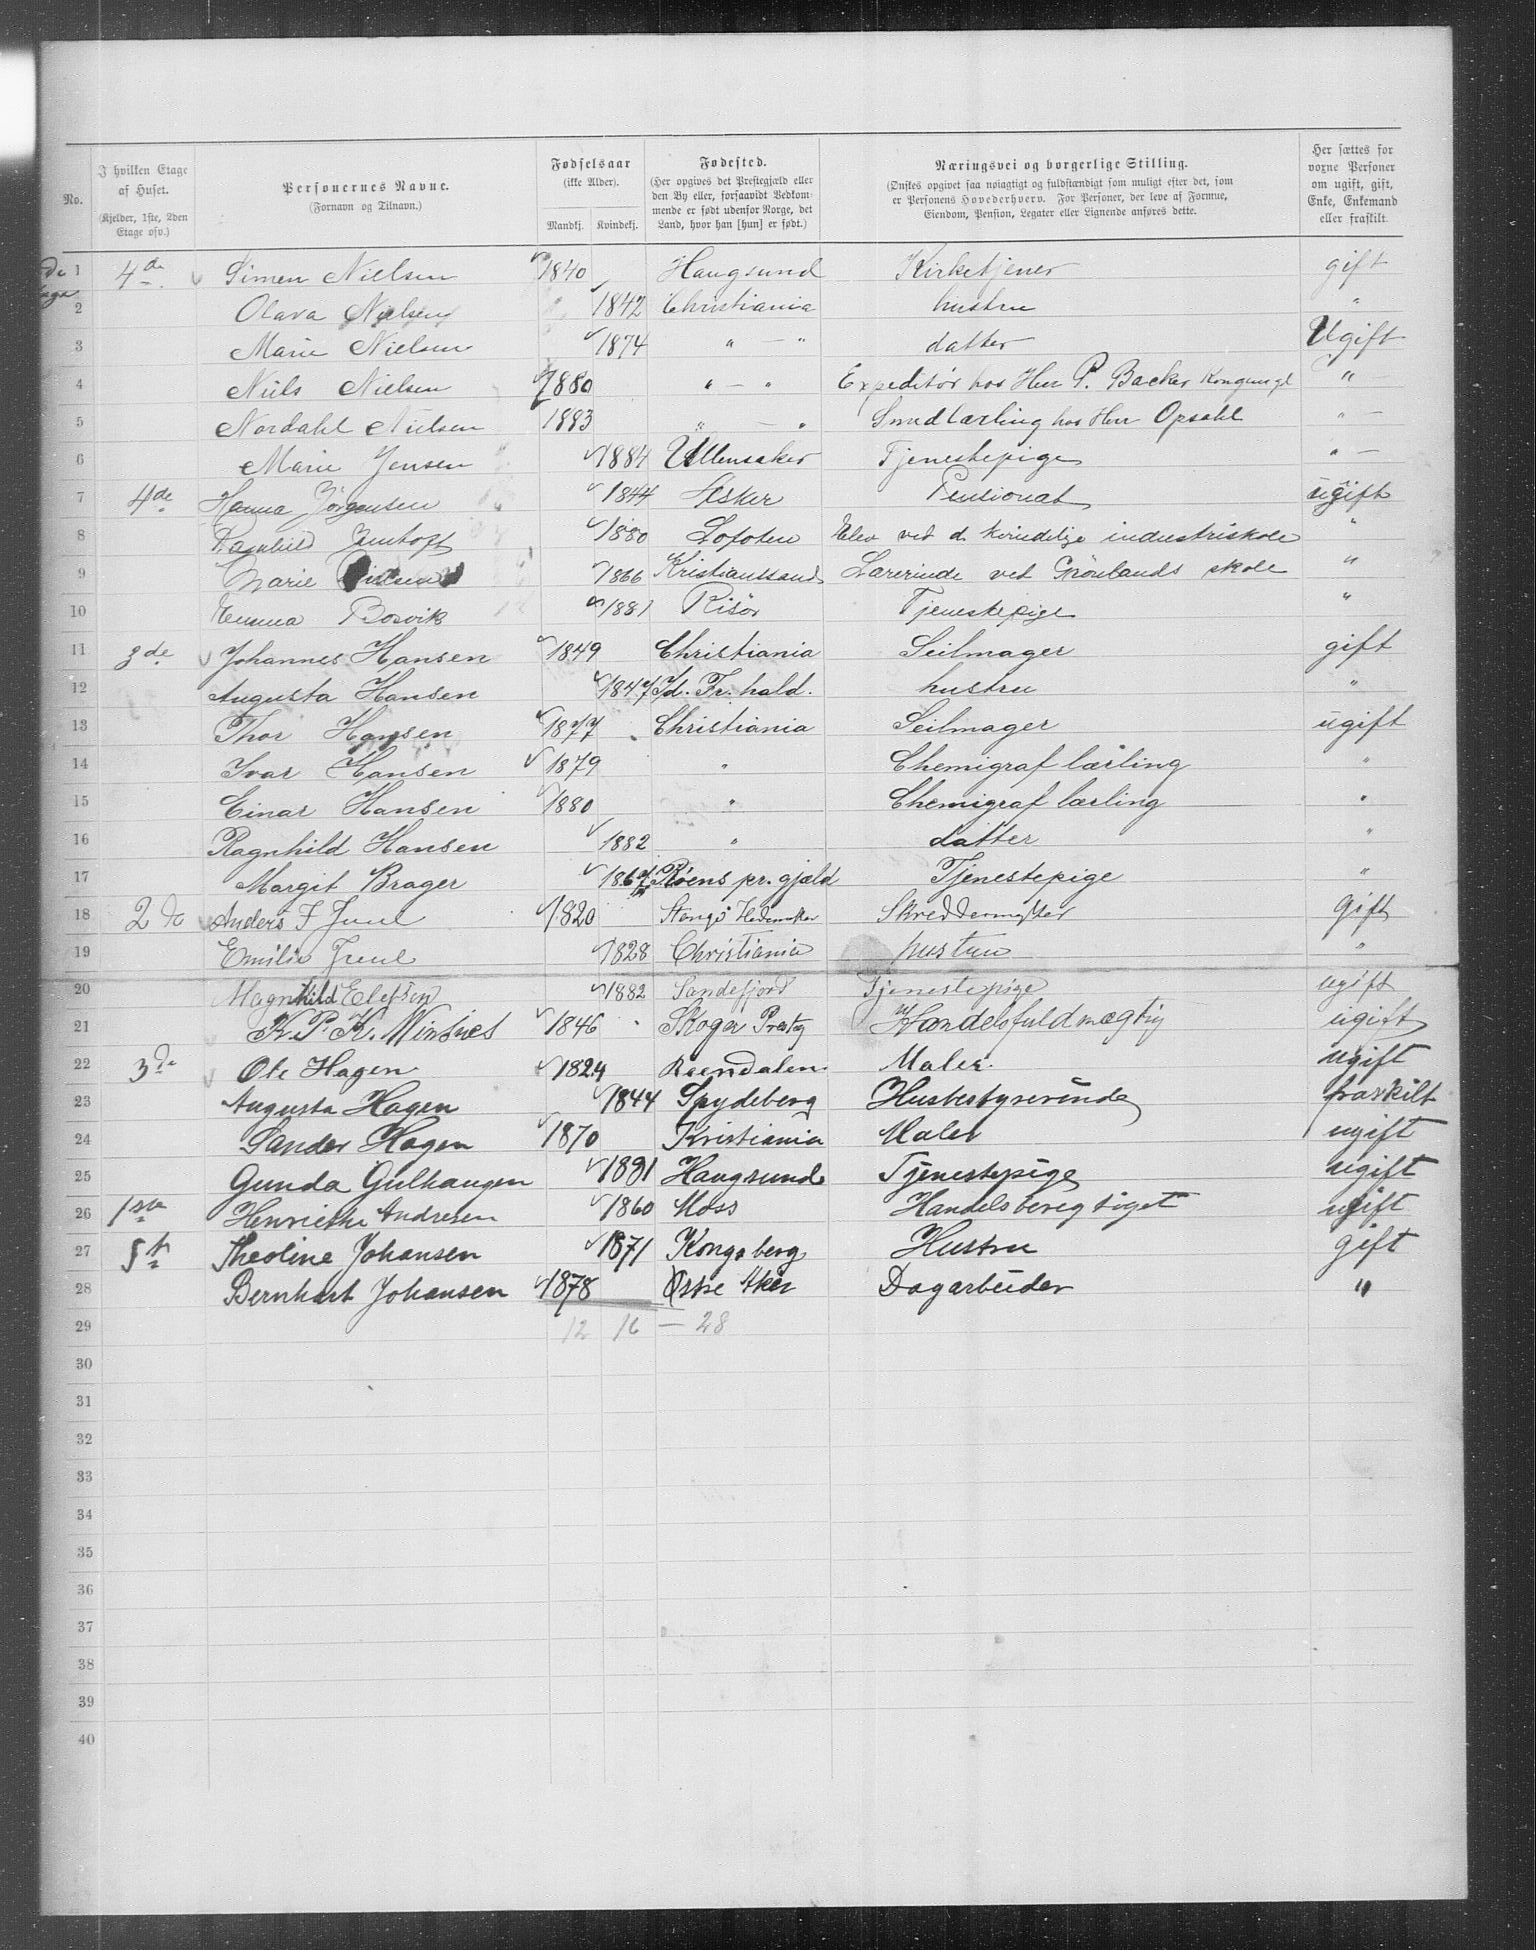 No.
I hvilken Etage af Huset. (Kjelder, 1ste, 2den Etage osv.)
Personernes Navne. (Fornavn og Tilnavn.)
Fødselsaar (ikke Alder). Mandkj. Kvindekj.
Fødested. (Her opgives det Prestegjæld eller den By eller, forsaavidt Vedkommende er født udenfor Norge, det Land, hvor han [hun] er født.)
Næringsvei og borgerlige Stilling. (Ønskes opgivet saa nøiagtigt og fuldstændigt som muligt efter det, som er Personens Hovederhverv. For Personer, der leve af Formue, Eiendom, Pension, Legater eller Lignende anføres dette.
Her sættes for voxne Personer om ugift, gift, Enke, Enkemand eller fraskilt.
1 4de Simen Nielsen 1840 Haugsund Kirketjener gift
2 Olava Nielsen 1842 Christiania hustru "
3 Marie Nielsen 1874 " — " datter Ugift
4 Niels Nielsen 1880 " — " Expeditör hos Herr P. Backer "
5 Nordahl Nielsen 1883 " — " Smedlærling hos Herr Opsahl " —
6 Marie Jensen 1884 Ullensaker Tjenestepige " —
7 4de Hanna Jörgensen 1844 Asker Pensionat ugift
8 1880 Lofoten Elev ved d. kvindelige industriskole "
9 Marie Nielsen 1866 Kristianssand Lærerinde ved Grönlands skole "
10 Emma Bosvik 1881 Risör Tjenestepige "
11 3de Johannes Hansen 1849 Christiania Seilmager gift
12 Augusta Hansen 1847 Id. Fr. hald. hustru "
13 Thor Hansen 1877 Christiania Seilmager ugift
14 Ivar Hansen 1879 " Chemigraf lærling "
15 Einar Hansen 1880 " Chemigraf lærling "
16 Ragnhild Hansen 1882 " datter "
17 Margit Brager 1867 pr. gjæld Tjenestepige "
18 2de Anders F Juul 1820 Stange Hedemarken Skreddermester Gift
19 Emilie Juul 1828 Christiania hustru "
20 Magnhild Elefsen 1882 Sandefjord Tjenestepige ugift
21 K. P. K. 1846 Skoger Prestg Handelsfuldmægtig ugift
22 3de Ole Hagen 1824 Maler. ugift
23 Augusta Hagen 1844 Spydeberg Husbestyrerinde fraskilt
24 Sander Hagen 1870 Kristiania Maler ugift
25 Gunda Gulhaugen 1881 Haugsund Tjenestepige ugift
26 1ste Henriette Andresen 1860 Moss Handelsberegtiget ugift
27 5te Theoline Johansen 1871 Kongsberg Hustru gift
28 Bernhart Johansen 1878 Østre Aker Dagarbeider "
29 12 16 — 28
30
31
32
33
34
35
36
37
38
39
40